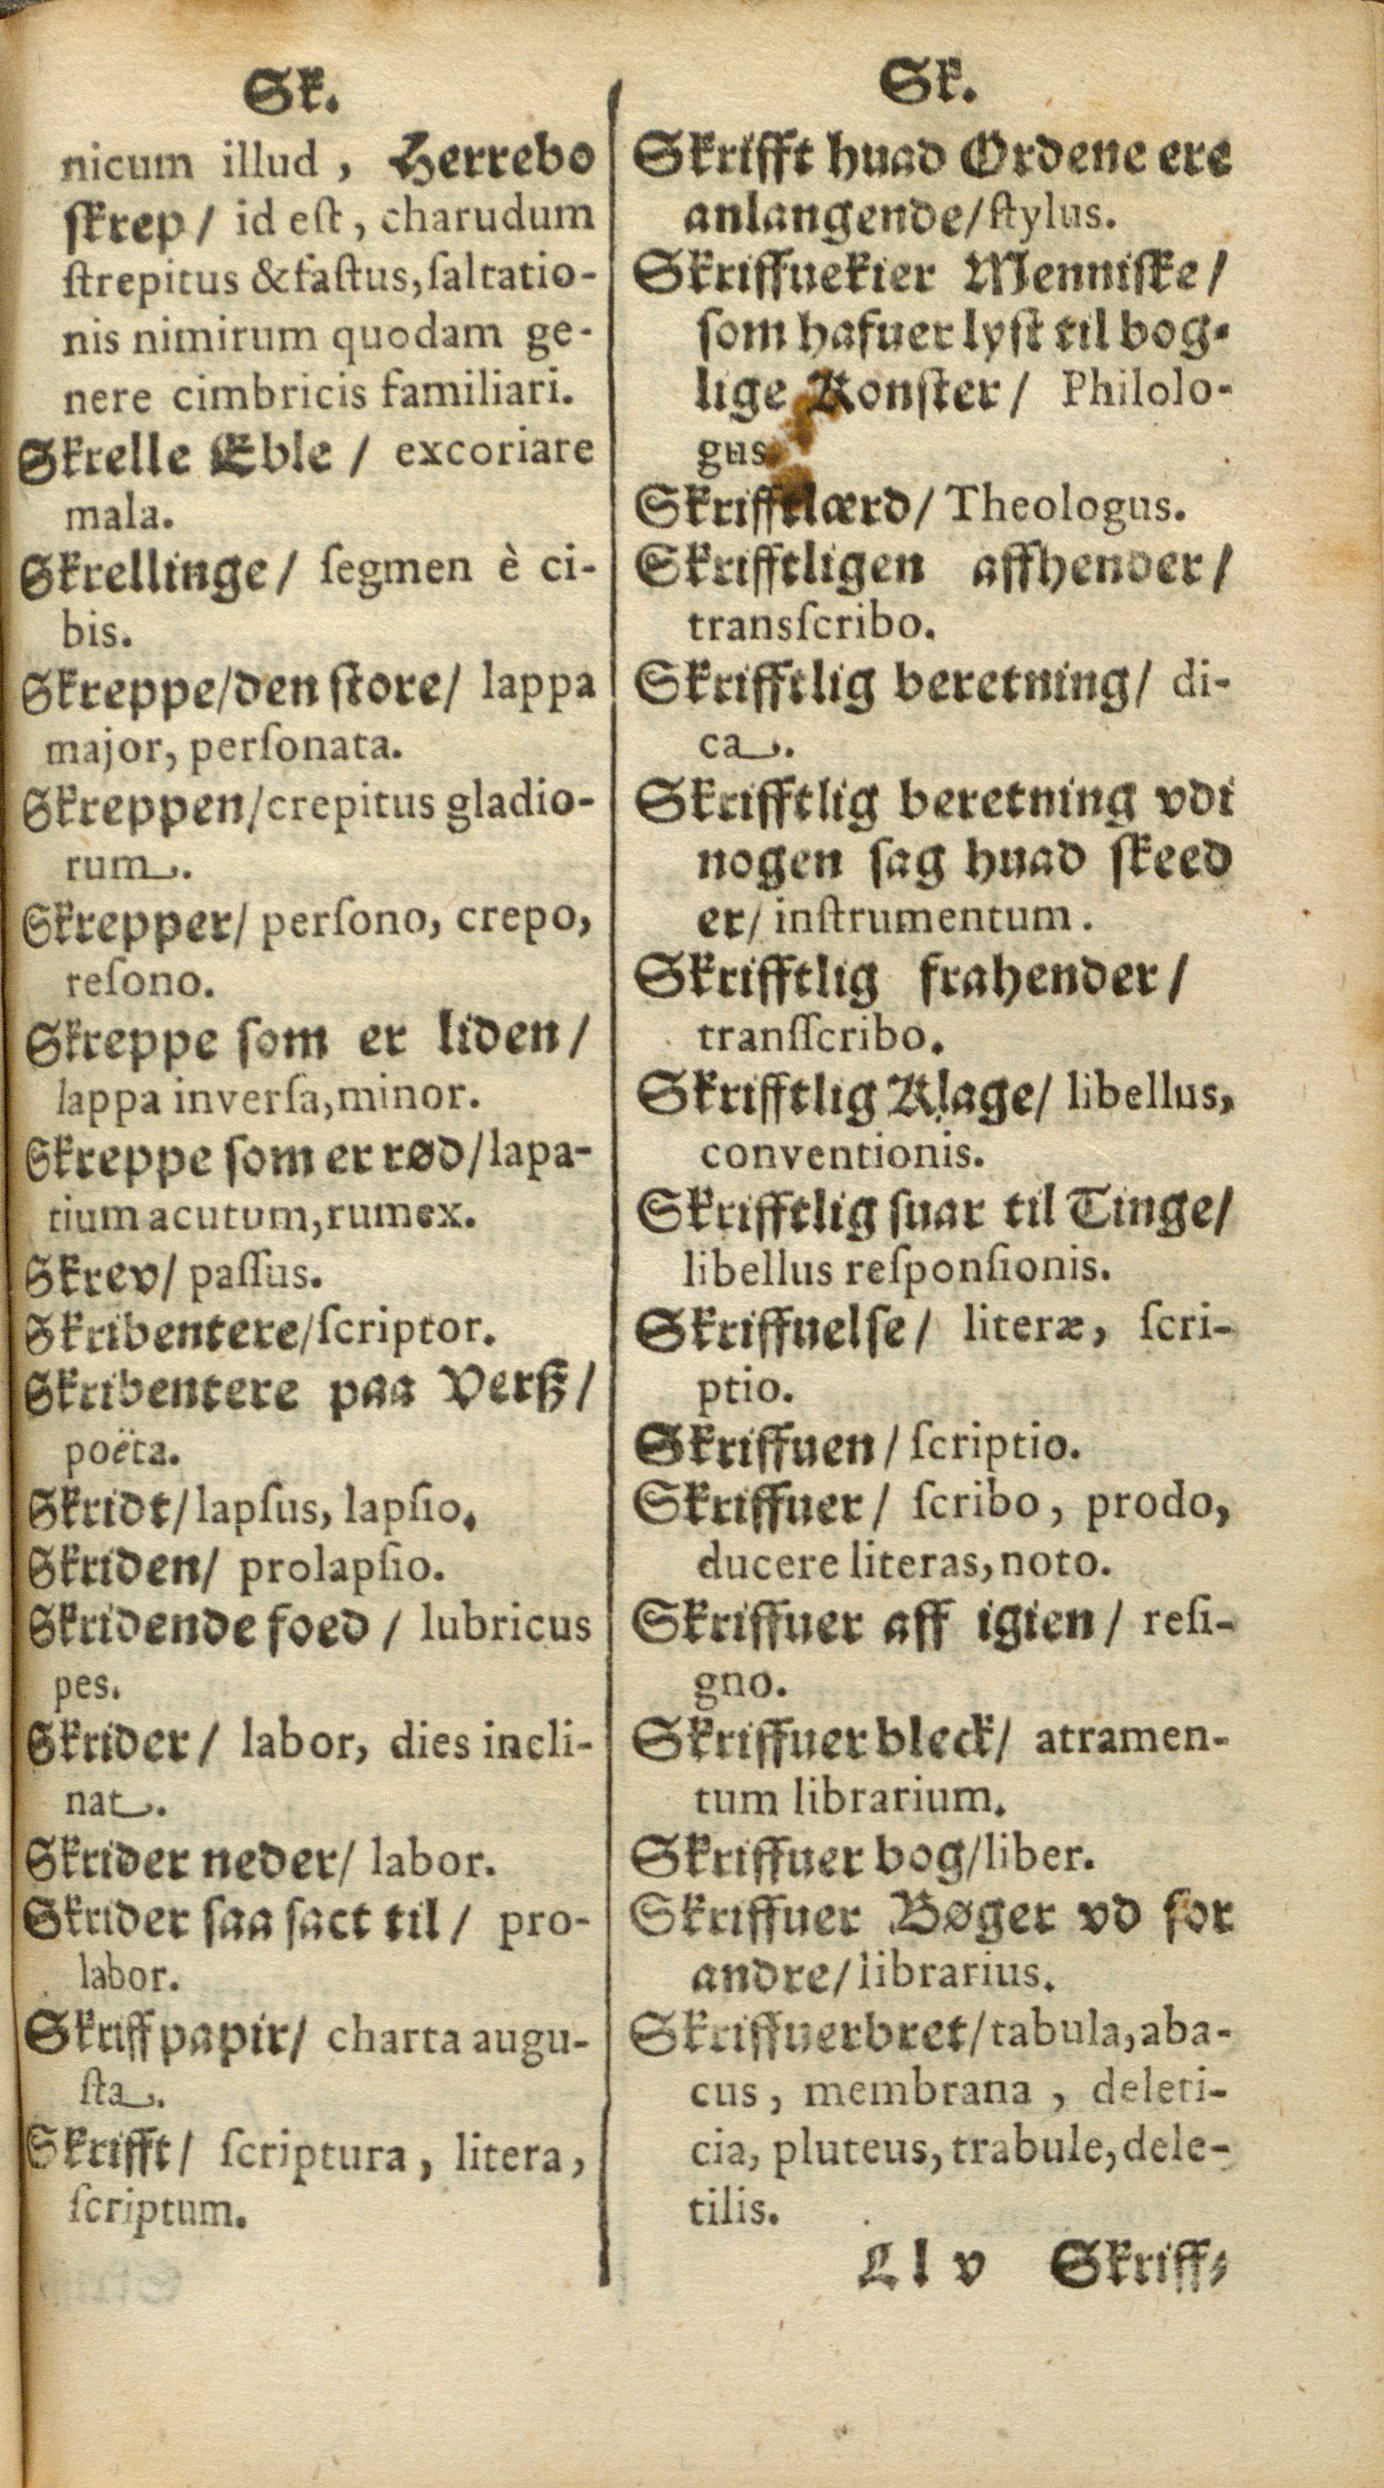 Sk.
nicum illud, Herrebo
skrep/ id eſt, charudum
ſtrepitus & faſtus, ſaltatio-
nis nimirum quodam ge-
nere cimbricis familiari.
Skrelle Eble / excoriare
mala.
Skrellinge/ ſegmen è ci-
bis.
Skreppe/den ſtore/ lappa
major, perſonata.
Skreppen/crepitus gladio-
rum.
Skrepper/ perſono, crepo,
reſono.
Skreppe ſom er liden/
lappa inverſa, minor.
Skreppe ſom er rød/lapa-
tium acutum, rumex.
Skrev/ paſſus.
Skribentere/ſcriptor.
Skribentere paa Verß/
poëta.
Skridt/lapſus, lapſio.
Skriden/ prolapſio.
Skridende foed / lubricus
pes.
Skrider/ labor, dies incli-
nat.
Skrider neder/ labor.
Skrider ſaa ſact til/ pro-
labor.
Skriff papir/ charta augu-
ſta.
Skrifft/ ſcriptura, litera,
ſcriptum.
Sk.
Skrifft huad Ordene ere
anlangende/ſtylus.
Skriffuekier Menniſke/
ſom hafuer lyſt til bog-
lige Konſter/ Philolo-
gus.
Skrifftlærd/ Theologus.
Skrifftligen affhender/
transſcribo.
Skrifftlig beretning/ di-
ca.
Skrifftlig beretning vdi
nogen ſag huad ſkeed
er/ inſtrumentum.
Skrifftlig frahender/
tranſſcribo.
Skrifftlig Klage/ libellus,
conventionis.
Skrifftlig ſuar til Tinge/
libellus reſponſionis.
Skriffuelſe/ literæ, ſcri-
ptio.
Skriffuen/ ſcriptio.
Skriffuer/ ſcribo, prodo,
ducere literas, noto.
Skriffuer aff igien/ reſi-
gno.
Skriffuer bleck/ atramen-
tum librarium.
Skriffuer bog/liber.
Skriffuer Bøger vd for
andre/librarius.
Skriffuerbret/tabula, aba-
cus, membrana, deleti-
cia, pluteus, trabule, dele-
tilis.
Ll v Skriff-